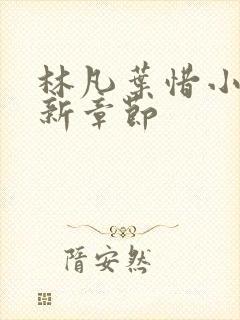 林凡葉惜小
新章節
隋安然